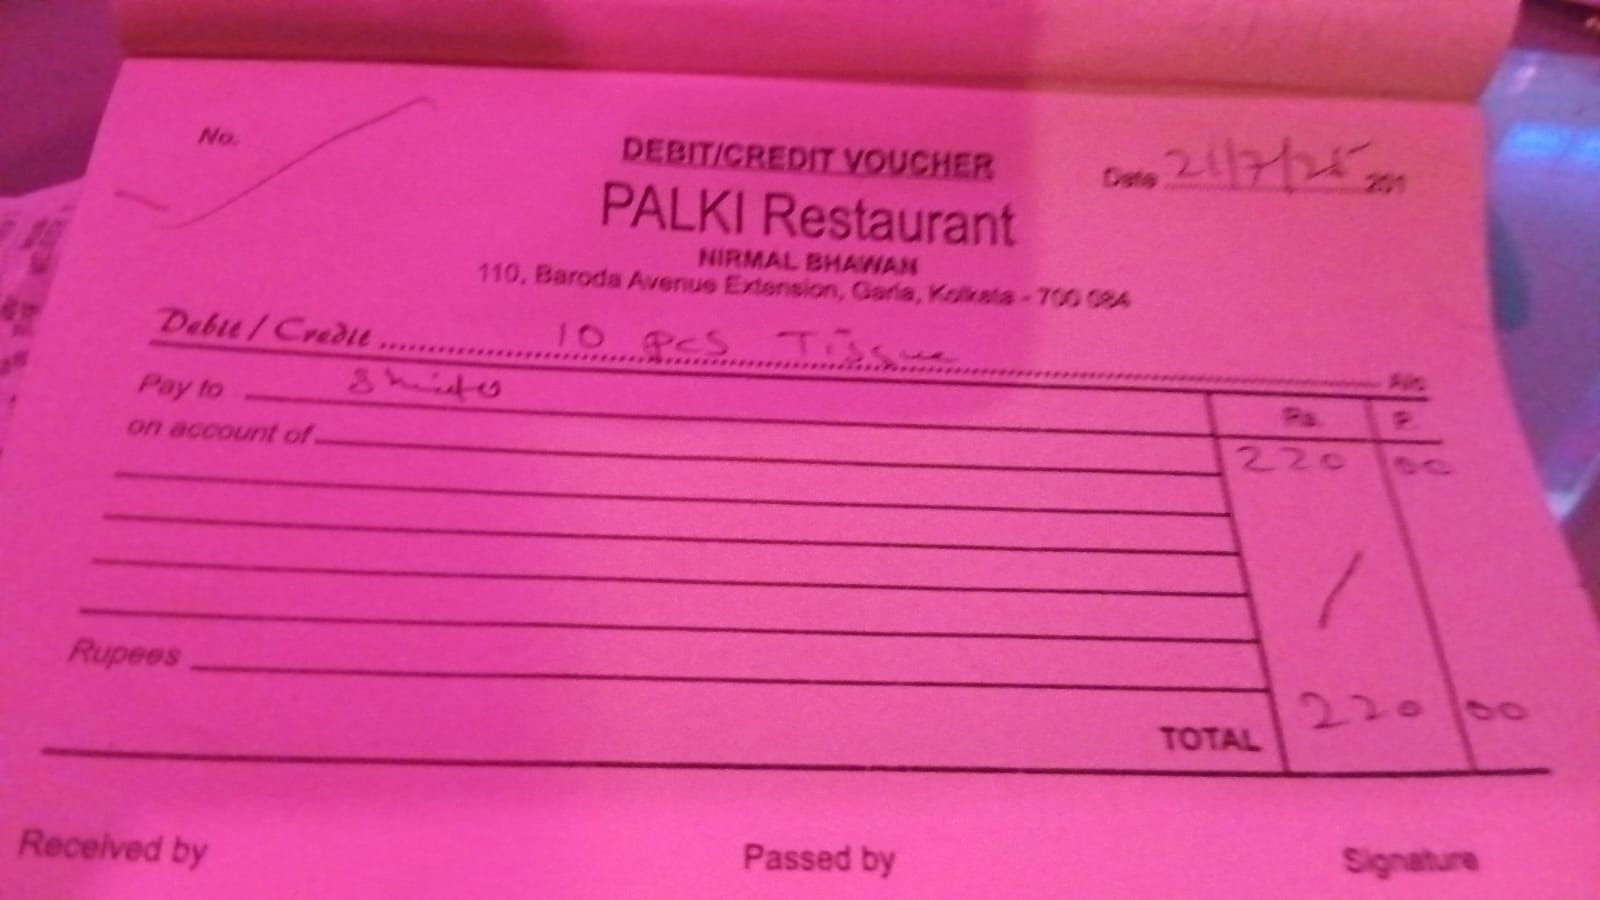 No.
DEBIT/CREDIT VOUCHER
Date 21/7/25 201
PALKI Restaurant
NIRMAL BHAWAN
110, Baroda Avenue Extension, Garia, Kolkata - 700 084
Debit / Credit 10 pcs Tissue A/c.
Pay to
Rs. P.
on account of
220 00
Rupees
TOTAL 220 00
Received by Passed by Signature